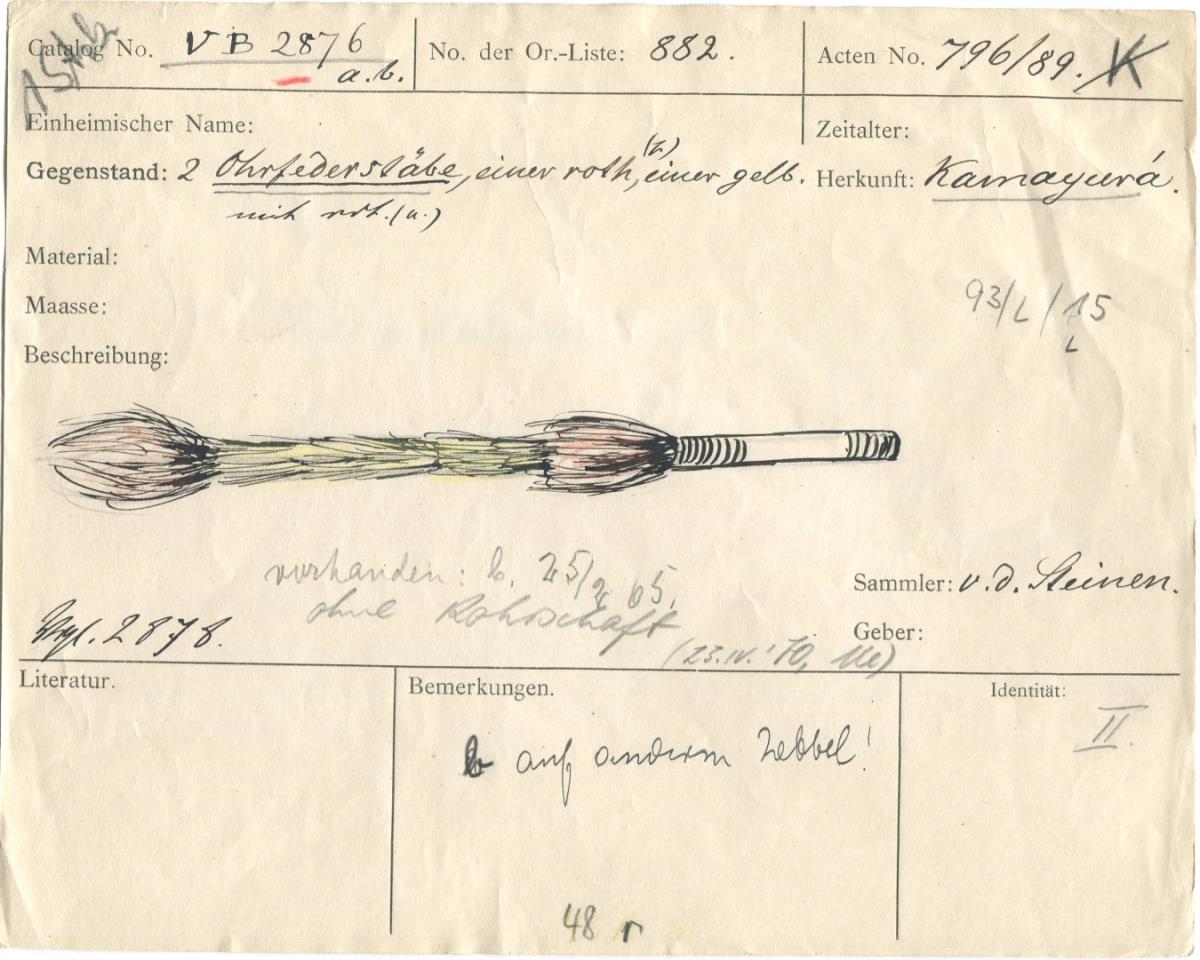 Catalog No. V B 2876 a.b.
No. der Or.-Liste: 882.
Acten No. 796/89. K
Einheimischer Name:
Zeitalter:
(z)
Gegenstand: 2 Ohrfederstäbe, einer roth, einer gelb.
mit rot. (u.)
Herkunft: Kamayurá.
Material:
93/L/15
L
Maasse:
Beschreibung:
vorhanden: b. 25/2 65.
ohne Rohrschaft
(23.IV.'70, )
Sammler: v. d. Steinen.
Geber:
Vgl. 2878.
Literatur.
Bemerkungen.
b auf anderm Zettel!
48 r
Identität:
II.